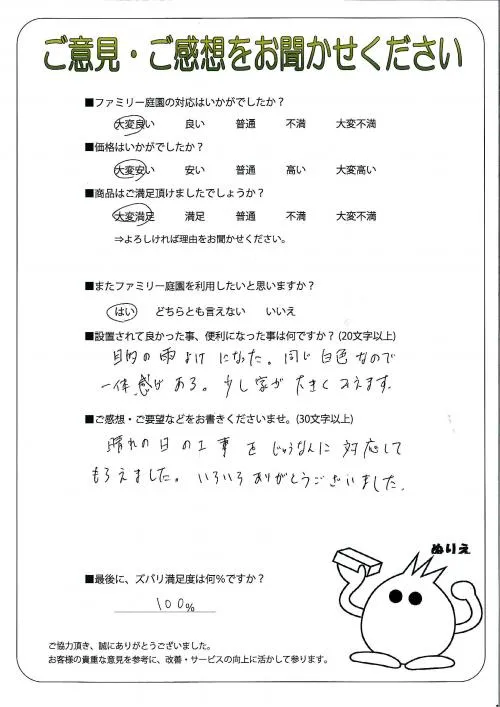 ご意見・ご感想をお聞かせください
■ファミリー庭園の対応はいかがでしたか？
大変良い 良い 普通 不満 大変不満
■価格はいかがでしたか？
大変安い 安い 普通 高い 大変高い
■商品はご満足頂けましたでしょうか？
大変満足 満足 普通 不満 大変不満
⇒よろしければ理由をお聞かせください。
■またファミリー庭園を利用したいと思いますか？
はい どちらとも言えない いいえ
■設置されて良かった事、便利になった事は何ですか？(20文字以上)
目的の雨よけになった。同じ白色なので
一体感がある。少し家が大きくみえます.
■ご感想・ご要望などをお書きくださいませ。(30文字以上)
晴れの日の工事をじゅうなんに対応して
もらえました。いろいろありがとうございました.
ぬりえ
■最後に、ズバリ満足度は何％ですか？
100％
ご協力頂き、誠にありがとうございました。
お客様の貴重な意見を参考に、改善・サービスの向上に活かして参ります。